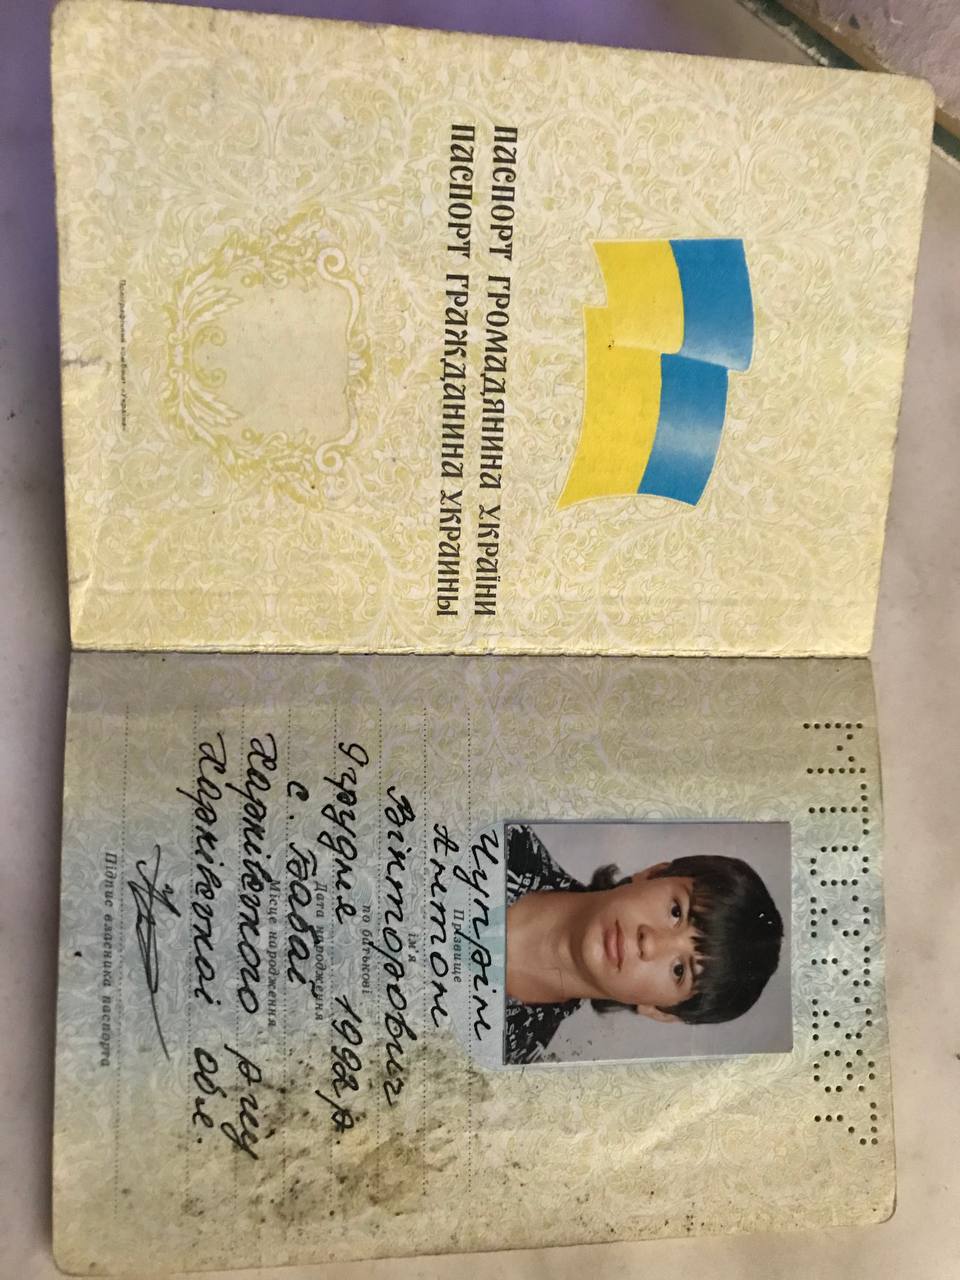 ПАСПОРТ ГРОМАДЯНИНА УКРАЇНИ
ПАСПОРТ ГРАЖДАНИНА УКРАИНЫ
Поліграфічний комбінат «Україна»
Чупрін
Прізвище
Антон
ім'я
Вікторович
по батькові
9 грудня 1992 р.
Дата народження
с. Бабаї
Місце народження
Харківського р-ну
Харківської обл.
Підпис власника паспорта